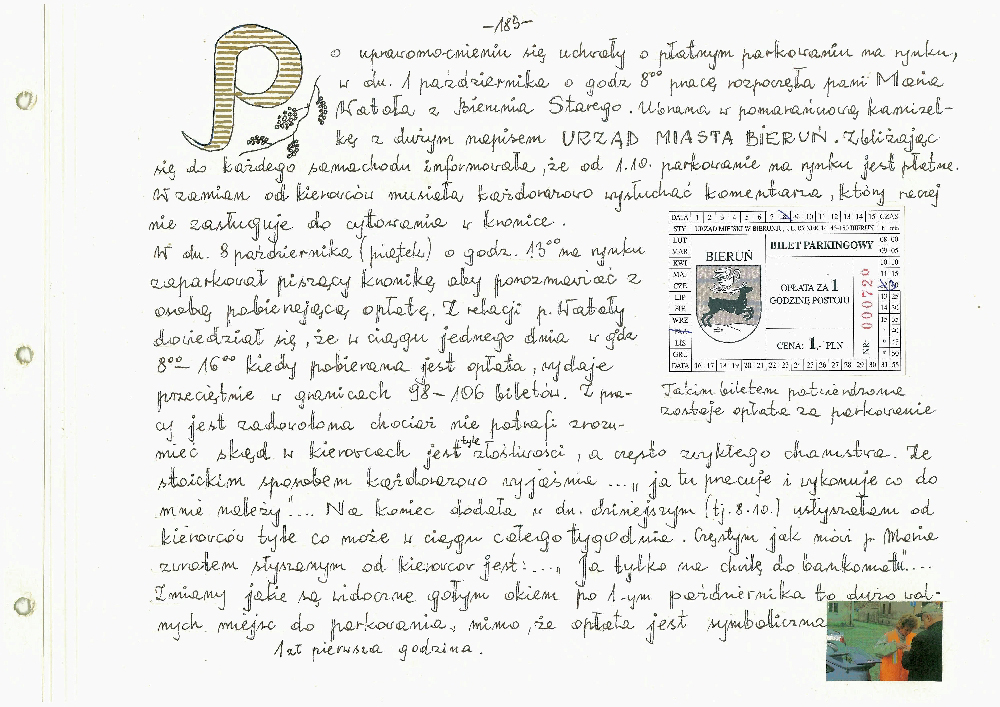 -189-
Po uprawomocnieniu się uchwały o płatnym parkowaniu na rynku,
w dn. 1 października o godz 8⁰⁰ pracę rozpoczęła pani Maria
Watoła z Bierunia Starego. Ubrana w pomarańczową kamizel-
kę z dużym napisem URZĄD MIASTA BIERUŃ. Zbliżając
się do każdego samochodu informowała, że od 1.10. parkowanie na rynku jest płatne.
W zamian od kierowców musiała każdorazowo wysłuchać komentarza, który raczej
nie zasługuje do cytowania w kronice.
W dn. 8 października (piątek) o godz. 13⁰⁰ na rynku
zaparkował piszący kronikę aby porozmawiać z
osobą pobierającą opłatę. Z relacji p. Watoły
dowiedział się, że w ciągu jednego dnia w godz
8⁰⁰ – 16⁰⁰ kiedy pobierana jest opłata, wydaje
przeciętnie w granicach 98 – 106 biletów. Z pra-
cy jest zadowolona chociaż nie potrafi zrozu-
mieć skąd w kierowcach jest tyle złośliwości, a często zwykłego chamstwa. Ze
stoickim sposobem każdorazowo wyjaśnia ...„ ja tu pracuję i wykonuję co do
mnie należy".... Na koniec dodała w dn. dzisiejszym (tj. 8.10.) usłyszałam od
kierowców tyle co może w ciągu całego tygodnia. Częstym jak mówi p. Maria
zwrotem słyszanym od kierowców jest: ...„ Ja tylko na chwilę do bankomatu"....
Zmiany jakie są widoczne gołym okiem po 1-ym października to dużo wol-
nych miejsc do parkowania, mimo, że opłata jest symboliczna
1 zł pierwsza godzina.
DATA 1 2 3 4 5 6 7 8 9 10 11 12 13 14 15 CZAS
STY URZĄD MIEJSKI W BIERUNIU
LUT
MAR
KWI
MAJ
CZE
LIP
SIE
WRZ
PAŹ
LIS
GRU
BIERUŃ
BILET PARKINGOWY
OPŁATA ZA 1
GODZINĘ POSTOJU
CENA: 1,- PLN
NR 000720
DATA 16 17 18 19 20 21 22 23 24 25 26 27 28 29 30 31
Takim biletem potwierdzona
zostaje opłata za parkowanie